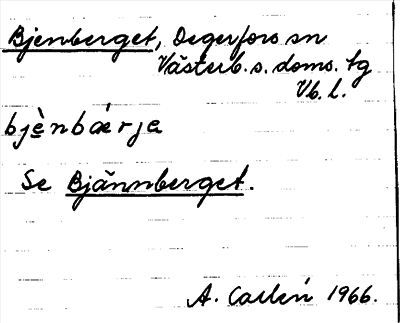 Bjenberget, Degerfors sn
Västerb. s. doms. tg
Vb. l.
bjènbárja
Se Bjännberget.
A. Carlén 1966.